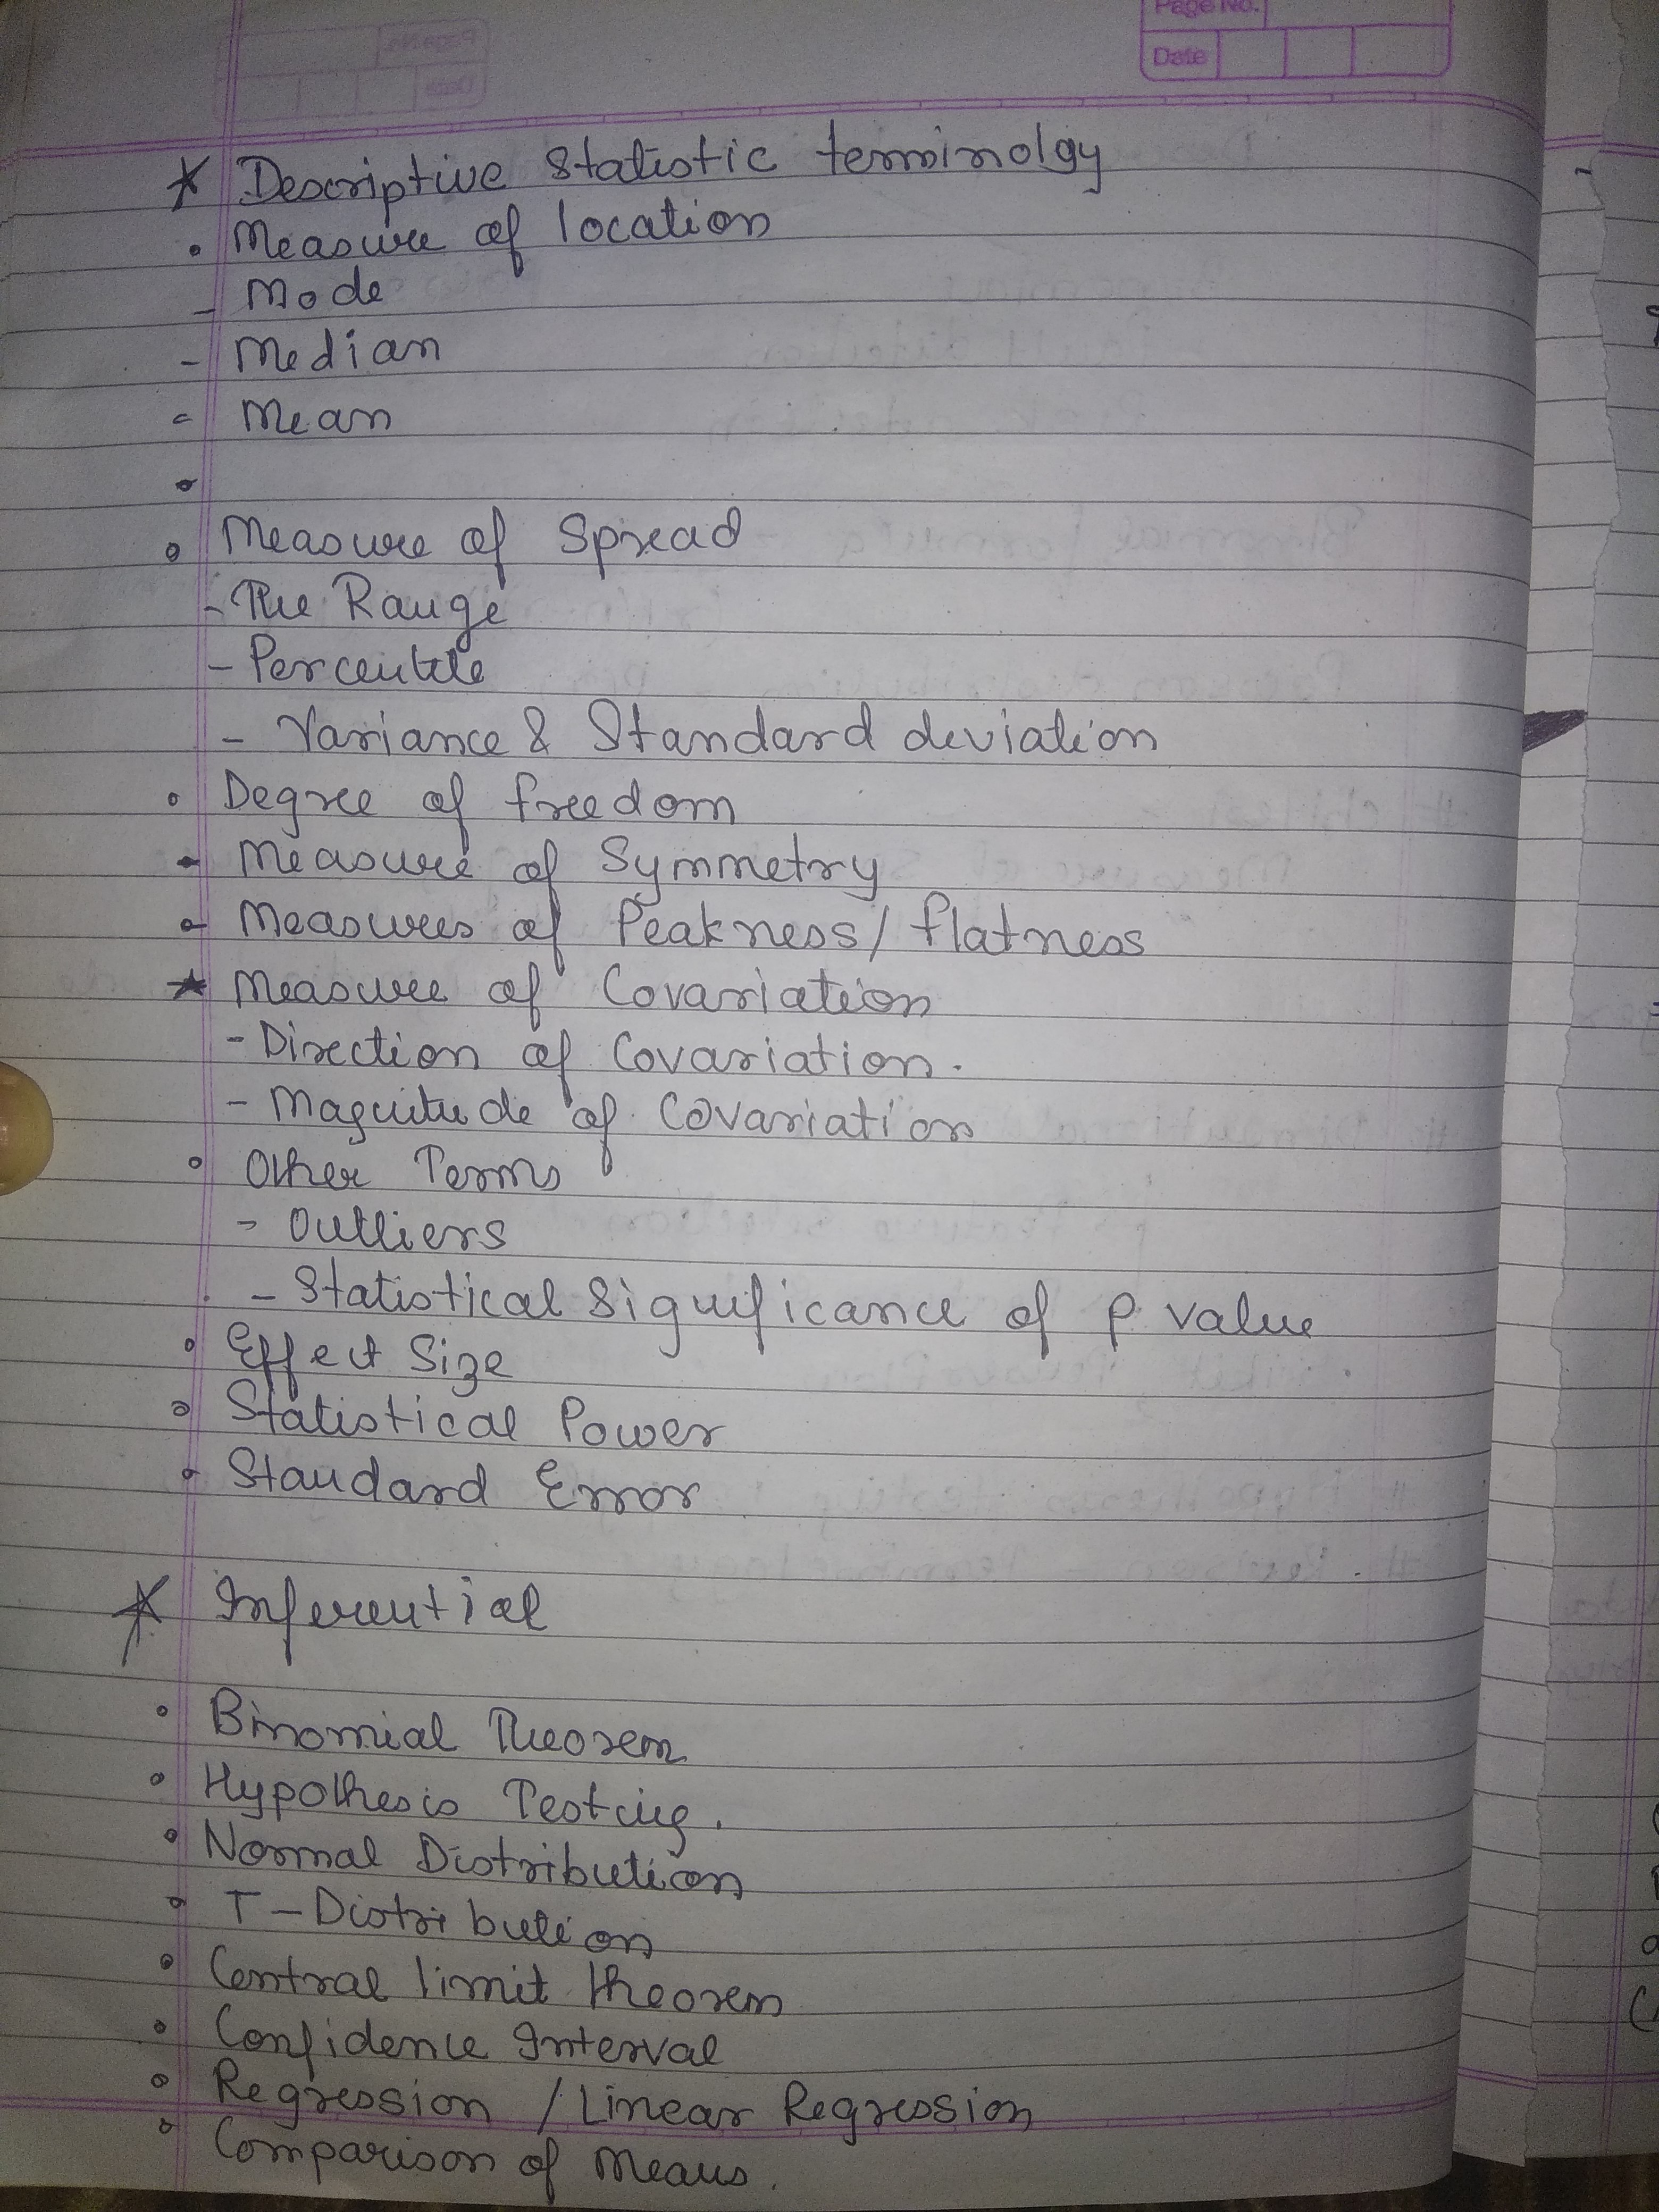 Page No.
Date
* Descriptive Statistic terminolgy
• Measure of location
- Mode
- Median
- Mean
•
• Measure of Spread
- The Range
- Percentile
- Variance & Standard deviation
• Degree of freedom
• Measure of Symmetry
• Measures of Peakness / flatness
* Measure of Covariation
- Direction of Covariation.
- Magnitude of Covariation
• Other Terms
- Outliers
- Statistical Significance of P value
• Effect Size
• Statistical Power
• Standard Error
* Inferential
• Binomial Theorem
• Hypothesis Testing.
• Normal Distribution
• T-Distribution
• Central limit theorem
• Confidence Interval
• Regression / Linear Regression
• Comparison of Means.